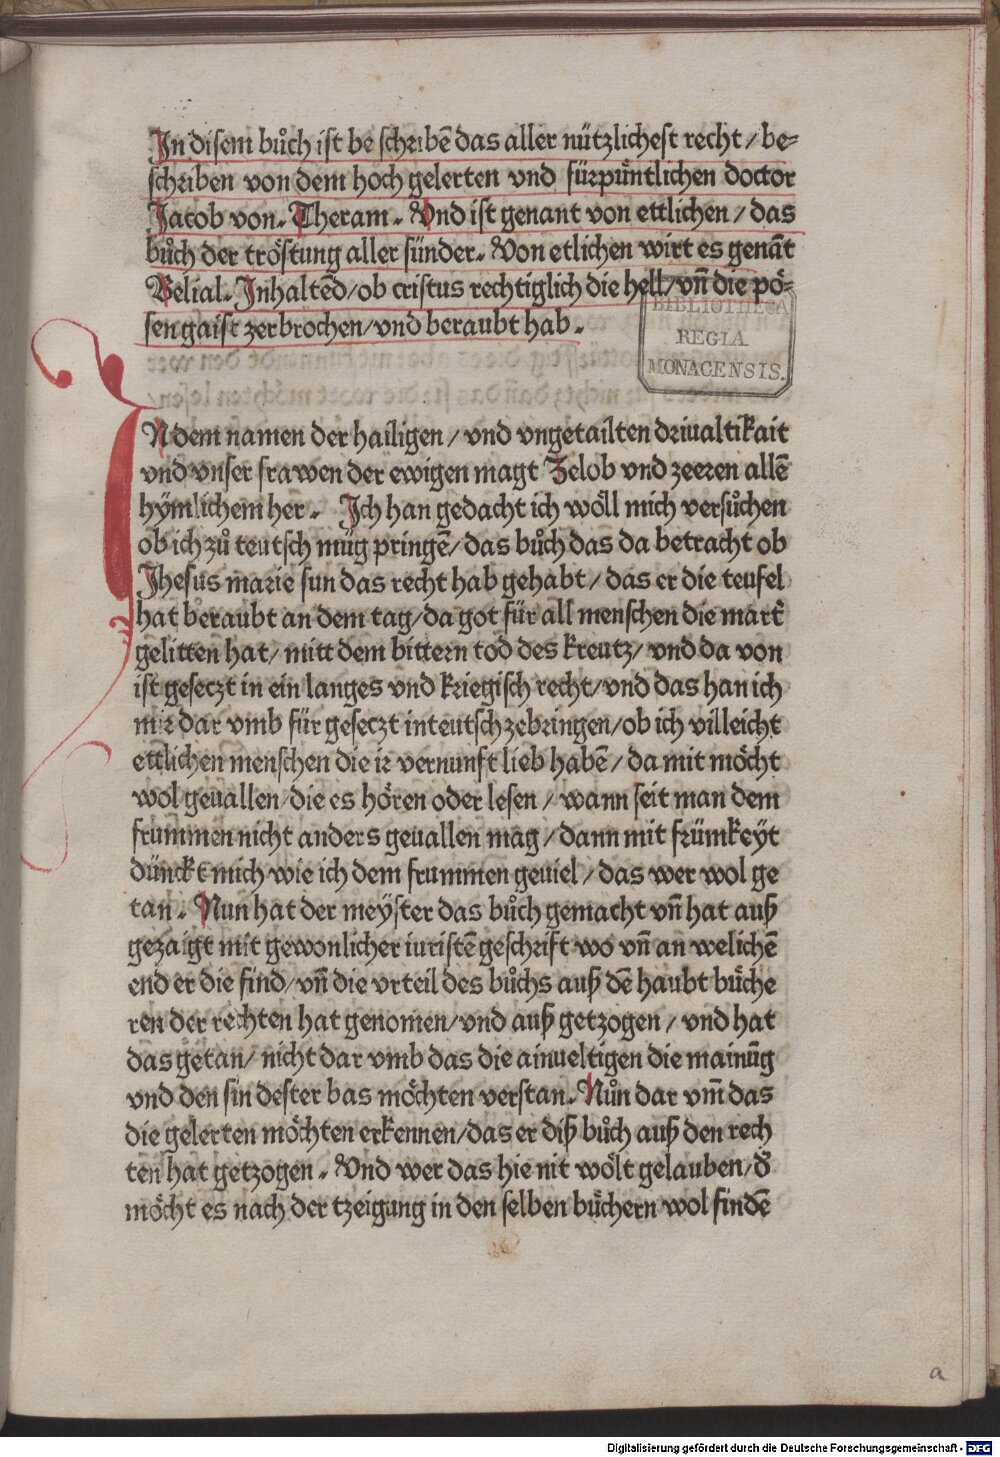 In disem bůch ist be schribē das aller nützlichest recht / be⸗
schriben von dem hoch gelerten vnd fürpüntlichen doctor
Jacob von. Theram. Vnd ist genant von ettlichen / das
bůch der tröstung aller sünder. Von etlichen wirt es genāt
Belial. Inhaltēd / ob cristus rechtiglich die hell / vñ die pö⸗
sen gaist zerbrochen / vnd beraubt hab.
BIBLIOTHECA
REGIA
MONACENSIS.
IN dem namen der hailigen / vnd vngetailten driualtikait
vnd vnser frawen der ewigen magt Zelob vnd zeeren allē
hÿmlichem her. Ich han gedacht ich wöll mich versůchen
ob ich zů teutsch müg pringē / das bůch das da betracht ob
Jhesus marie sun das recht hab gehabt / das er die teufel
hat beraubt an dem tag / da got für all menschen die mart̄
gelitten hat / mitt dem bittern tod des kreutz / vnd da von
ist geseczt in ein langes vnd kriegisch recht / vnd das han ich
mir dar vmb für geseczt in teutsch zebringen / ob ich villeicht
ettlichen menschen die ir vernunft lieb habē / da mit möcht
wol geuallen / die es hören oder lesen / wann seit man dem
frummen nicht anders geuallen mag / dann mit frümkeÿt
dünckt mich wie ich dem frummen geuiel / das wer wol ge
tan. Nun hat der meÿster das bůch gemacht vñ hat auß
gezaigt mit gewonlicher iuristē geschrift wo vñ an welichē
end er die find / vñ die vrteil des bůchs auß dē haubt büche
ren der rechten hat genomen / vnd auß getzogen / vnd hat
das getan / nicht dar vmb das die ainueltigen die mainūg
vnd den sin dester bas möchten verstan. Nůn dar vm̄ das
die gelerten möchten erkennen / das er diß bůch auß den rech
ten hat getzogen. Vnd wer das hie nit wölt gelauben / d̄
möcht es nach der tzeigung in den selben büchern wol findē
a
Digitalisierung gefördert durch die Deutsche Forschungsgemeinschaft - DFG